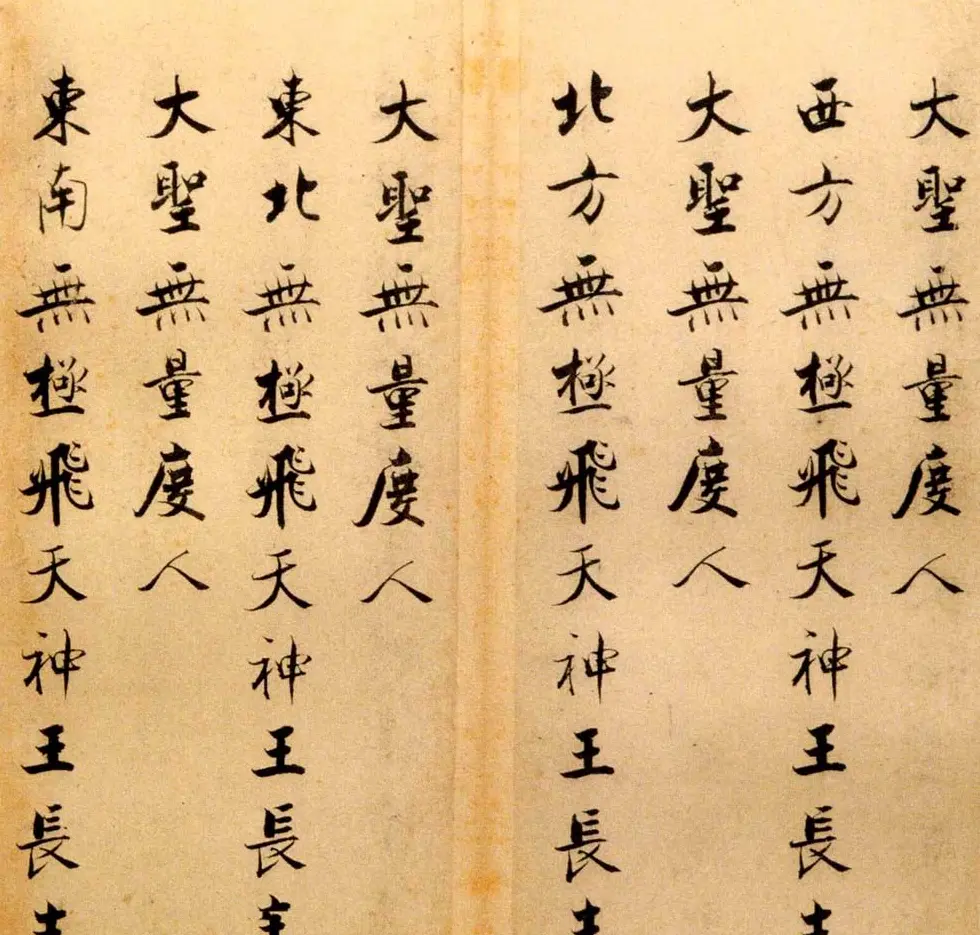 大聖無量度人
西方無極飛天神王長
大聖無量度人
北方無極飛天神王長
大聖無量度人
東北無極飛天神王長
大聖無量度人
東南無極飛天神王長